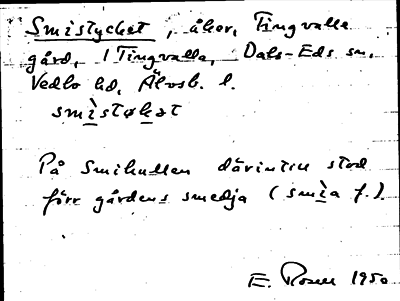 Smistycket, åker, Tingvalla
gård, 1 Tingvalla, Dals-Eds sn,
Vedbo hd, Älvsb. l.
smìstøkət
På Smikullen därintill stod
förr gårdens smedja (smìa f.).
E. Rosell 1950